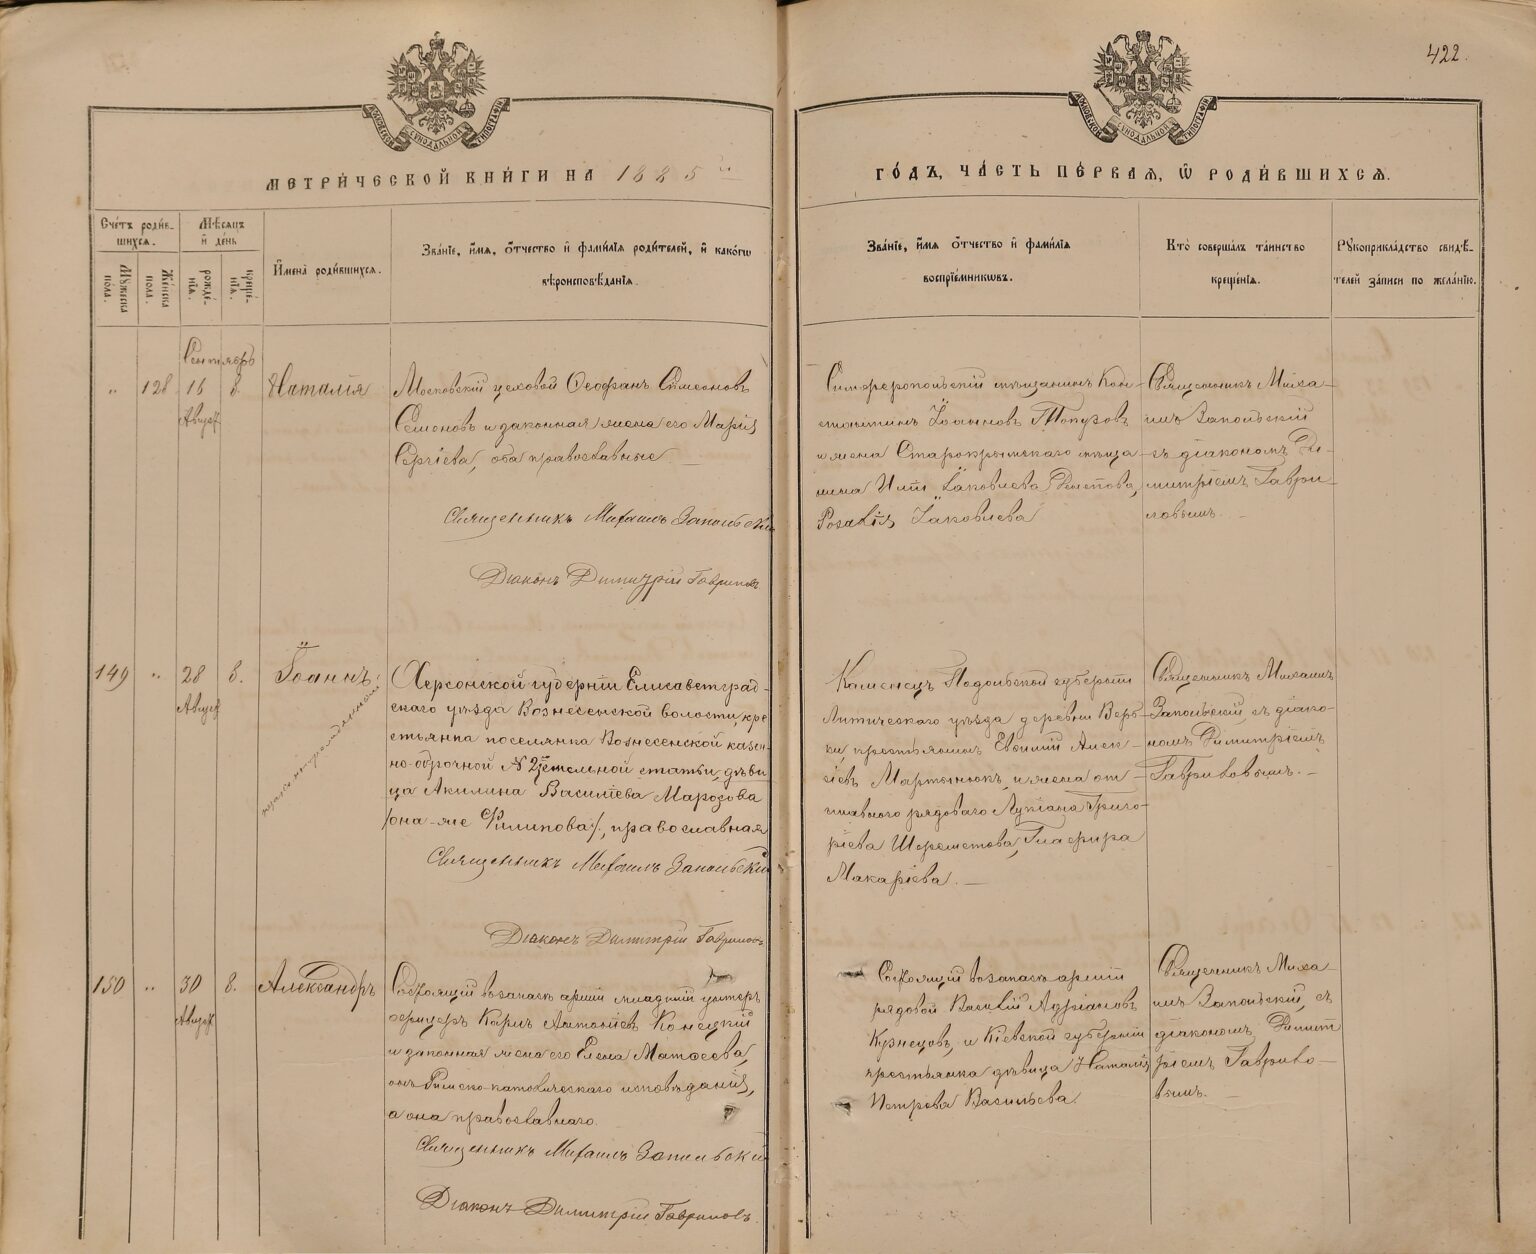 422.
МОСКОВСКОЙ СѴНОДАЛЬНОЙ ТИПОГРАФІИ
МОСКОВСКОЙ СѴНОДАЛЬНОЙ ТИПОГРАФІИ
МЕТРИ́ЧЕСКОЙ КНИ́ГИ НА 1885й
ГО́ДЪ, ЧА́СТЬ ПЕ́РВАѦ, Ѿ РОДИ́ВШИХСѦ.
Сче́тъ роди́в-
шихсѧ.
Мꙋжеска по́ла.
Же́нска пола.
Мѣ́сѧцъ
и҆ де́нь
рожде́-
нїѧ.
креще́-
нїѧ.
И҆мена̀ роди́вшихсѧ.
Зва́нїе, и҆́мѧ, ѻ҆́тчество и҆ фами́лїѧ роди́телей, и҆ како́гѡ
вѣроисповѣ́данїѧ.
Зва́нїе, и҆́мѧ ѻ҆́тчество и҆ фами́лїѧ
воспрїе́мникѡвъ.
Кто̀ соверша́лъ та́инство
креще́нїѧ.
Рꙋкоприкла́дство свидѣ́-
телей за́писи по жела́нїю.
Сентябрь
" 128 16 8. Наталія
Августъ
Московскій цеховой Ѳеофанъ Симеоновъ
Семеновъ и законная жена его Марія
Сергіева, оба православные.
Священникъ Михаилъ Запольскій
Діаконъ Димитрій Гавриловъ
Симферопольскій мѣщанинъ Кон-
стантинъ Іоанновъ Топузовъ
и жена Старокрымскаго мѣща-
нина Иліи Іаковлева
Розалія Іаковлева
Священникъ Миха-
илъ Запольскій
съ діакономъ Ди-
митріемъ Гаври-
ловымъ.
149 " 28 8. Іоаннъ
Августъ
незаконнорожденный
Херсонской губерніи Елисаветград-
скаго уѣзда Вознесенской волости, кре-
стьянка поселянка Вознесенской казен-
но-оброчной № 2й земельной статьи, дѣви-
ца Акилина Василіева Марозова
/она-же Филипова/, православная
Священникъ Михаилъ Запольскій
Діаконъ Димитрій Гавриловъ
Каменецъ Подольской губерніи
Литическаго уѣзда деревни Верб-
ки, крестьянинъ Евѳимій Алек-
сіевъ Мартынюкъ, и жена от-
ставного рядоваго Лукіана Григо-
ріева Шереметова, Гликирія
Макаріева.
Священникъ Михаилъ
Запольскій, съ діако-
номъ Димитріемъ
Гавриловымъ.
150 " 30 8. Александръ
Августъ
Состоящій въ запасѣ арміи младшій унтеръ
офицеръ Карлъ Антоніевъ Конецкій
и законная жена его Елена Матѳеева,
онъ Римско-католическаго исповѣданія,
а она православнаго.
Священникъ Михаилъ Запольскій
Діаконъ Димитрій Гавриловъ.
Состоящій въ запасѣ арміи
рядовой Василій Адріановъ
Кузнецовъ, и Кіевской губерніи
крестьянка дѣвица Наталія
Петрова Васильева.
Священникъ Миха-
илъ Запольскій, съ
діакономъ Димит-
ріемъ Гаврило-
вымъ.